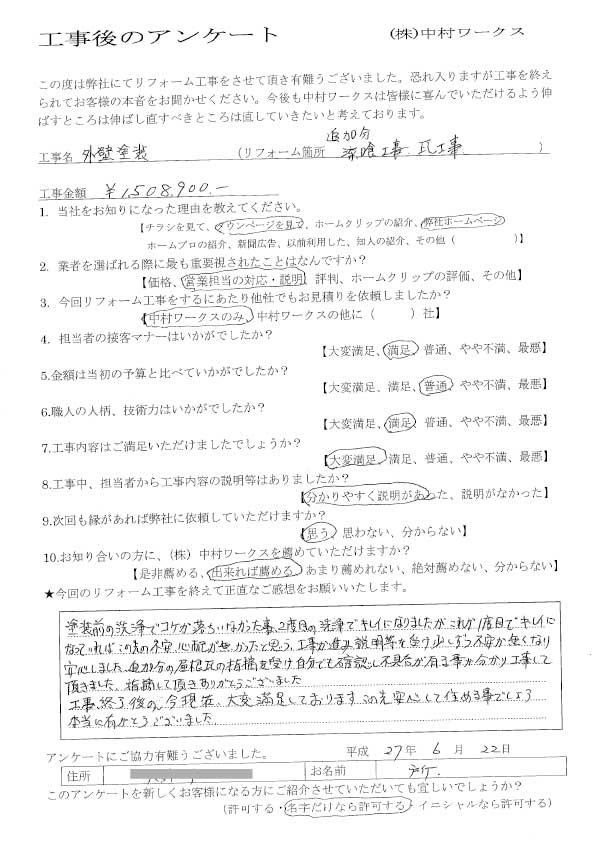 工事後のアンケート　(株)中村ワークス
この度は弊社にてリフォーム工事をさせて頂き有難うございました。恐れ入りますが工事を終え
られてお客様の本音をお聞かせください。今後も中村ワークスは皆様に喜んでいただけるよう伸
ばすところは伸ばし直すべきところは直していきたいと考えております。
追加分
工事名　外壁塗装　(リフォーム箇所　漆喰工事、瓦工事　)
工事金額　￥1,508,900.-
1. 当社をお知りになった理由を教えてください。
【チラシを見て、タウンページを見て、ホームクリップの紹介、弊社ホームページ
ホームプロの紹介、新聞広告、以前利用した、知人の紹介、その他（　　　）】
2. 業者を選ばれる際に最も重要視されたことはなんですか？
【価格、営業担当の対応・説明、評判、ホームクリップの評価、その他】
3. 今回リフォーム工事をするにあたり他社でもお見積りを依頼しましたか？
【中村ワークスのみ、中村ワークスの他に（　　）社】
4. 担当者の接客マナーはいかがでしたか？
【大変満足、満足、普通、やや不満、最悪】
5.金額は当初の予算と比べていかがでしたか？
【大変満足、満足、普通、やや不満、最悪】
6.職人の人柄、技術力はいかがでしたか？
【大変満足、満足、普通、やや不満、最悪】
7.工事内容はご満足いただけましたでしょうか？
【大変満足、満足、普通、やや不満、最悪】
8.工事中、担当者から工事内容の説明等はありましたか？
【分かりやすく説明があった、説明がなかった】
9.次回も縁があれば弊社に依頼していただけますか？
【思う、思わない、分からない】
10.お知り合いの方に、(株) 中村ワークスを薦めていただけますか？
【是非薦める、出来れば薦める、あまり薦めれない、絶対薦めない、分からない】
★今回のリフォーム工事を終えて正直なご感想をお願いいたします。
塗装前の洗浄でコケが落ちいなかった事、2度目の洗浄でキレイになりましたが、これが1度目でキレイに
なっていればこの先の不安、心配が無かったと思う。工事が進み説明等を受け少しずつ不安が無くなり
安心しました。追加分の屋根瓦の指摘を受け自分でも確認し不具合が有る事が分かり工事して
頂きました。指摘して頂きありがとうございました
工事、終了後の今現在、大変満足しております この先安心して住める事でしょう
本当に有がとうございました。
アンケートにご協力有難うございました。　平成 27年 6月 22日
住所　お名前
このアンケートを新しくお客様になる方にご紹介させていただいても宜しいでしょうか？
（許可する・名字だけなら許可する・イニシャルなら許可する）